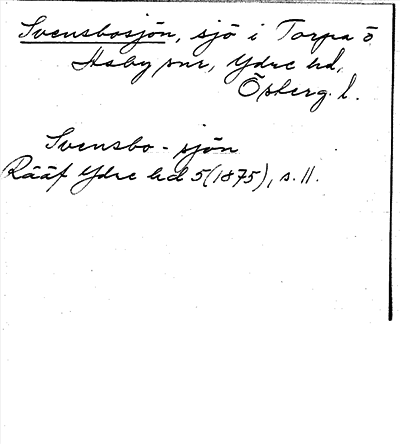 Svensbosjön, sjö i Torpa o.
Asby snr, Ydre hd,
Österg. l.
Svensbo-sjön
Rääf Ydre hd 5(1875), s. 11.